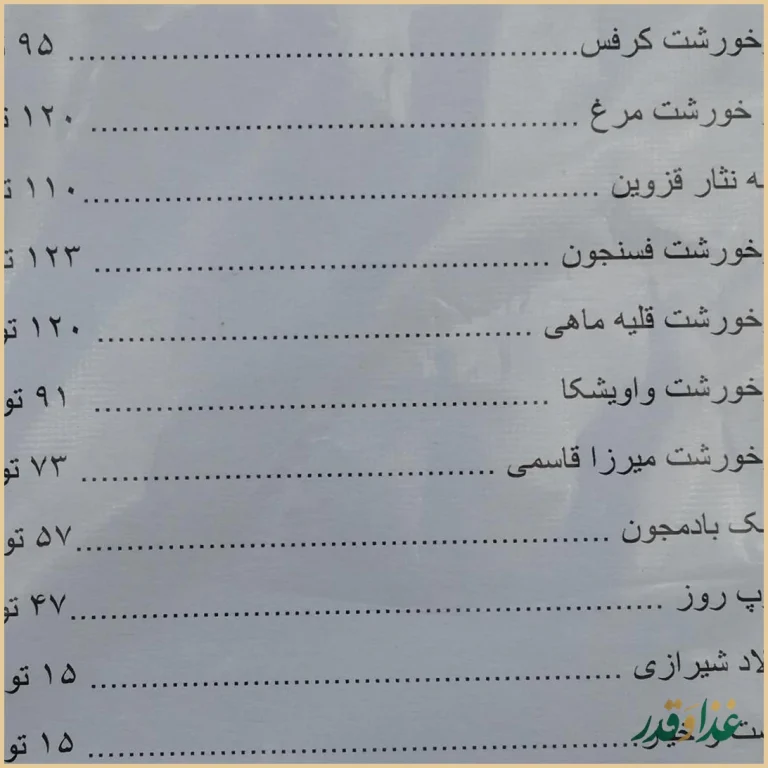 خورشت کرفس ........ ۹۵
خورشت مرغ ........ ۱۲۰
نثار قزوین ........ ۱۱۰
خورشت فسنجون ........ ۱۲۳
خورشت قلیه ماهی ........ ۱۲۰ تو
خورشت واویشکا ........ ۹۱ تو
خورشت میرزا قاسمی ........ ۷۳ تو
بادمجون ........ ۵۷ تو
روز ........ ۴۷ تو
شیرازی ........ ۱۵ تو
........ ۱۵ تو
غذا و قدر